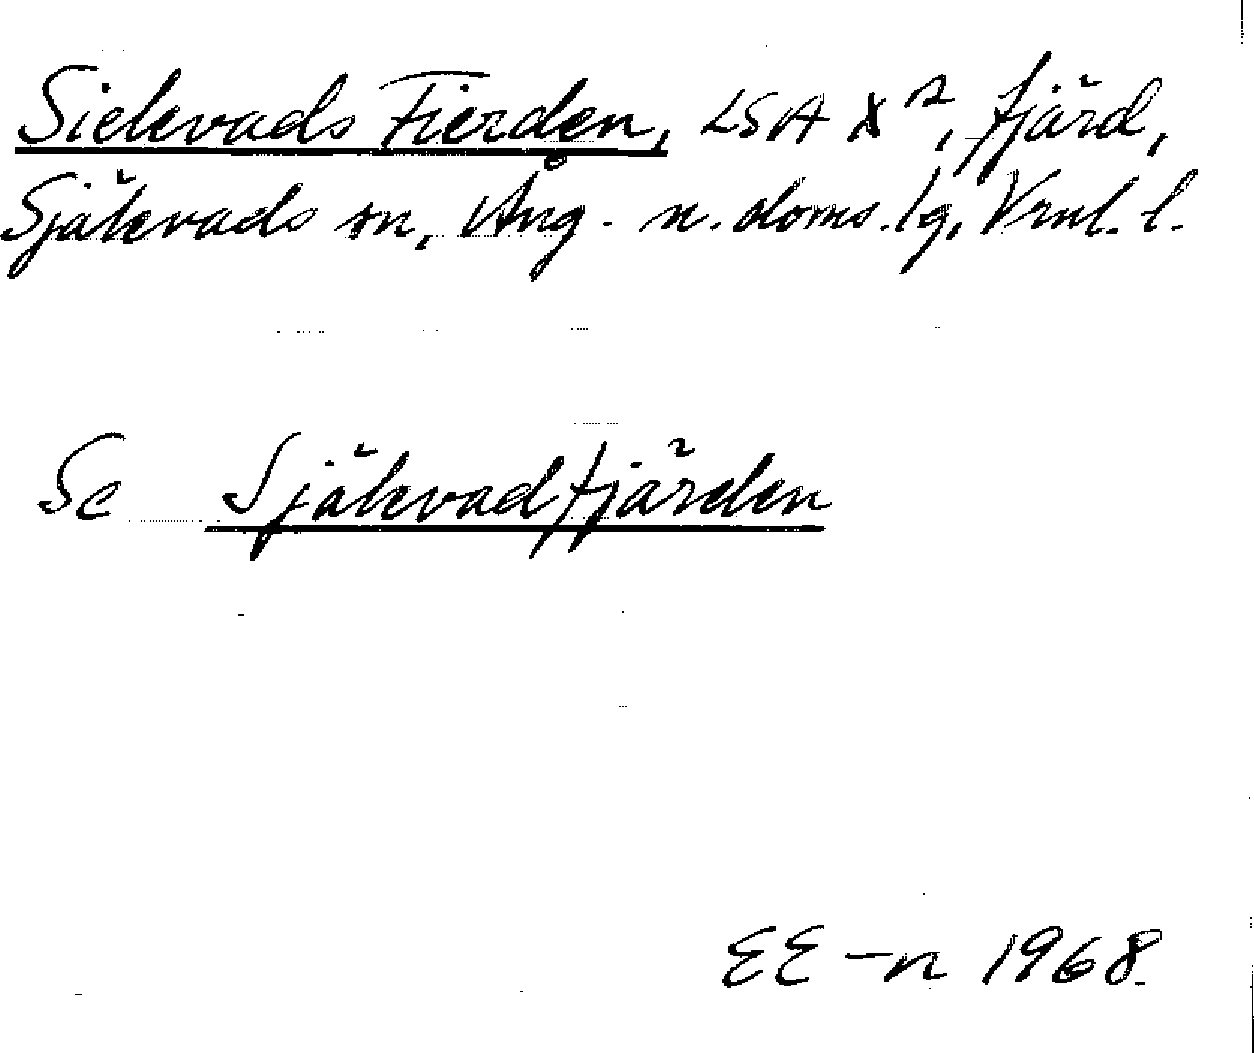 Sielevads Fierden, LSA X², fjärd,
Själevads sn, Ång. n. doms.lg, Vrnl. l.
Se Själevadfjärden
EE-n 1968.